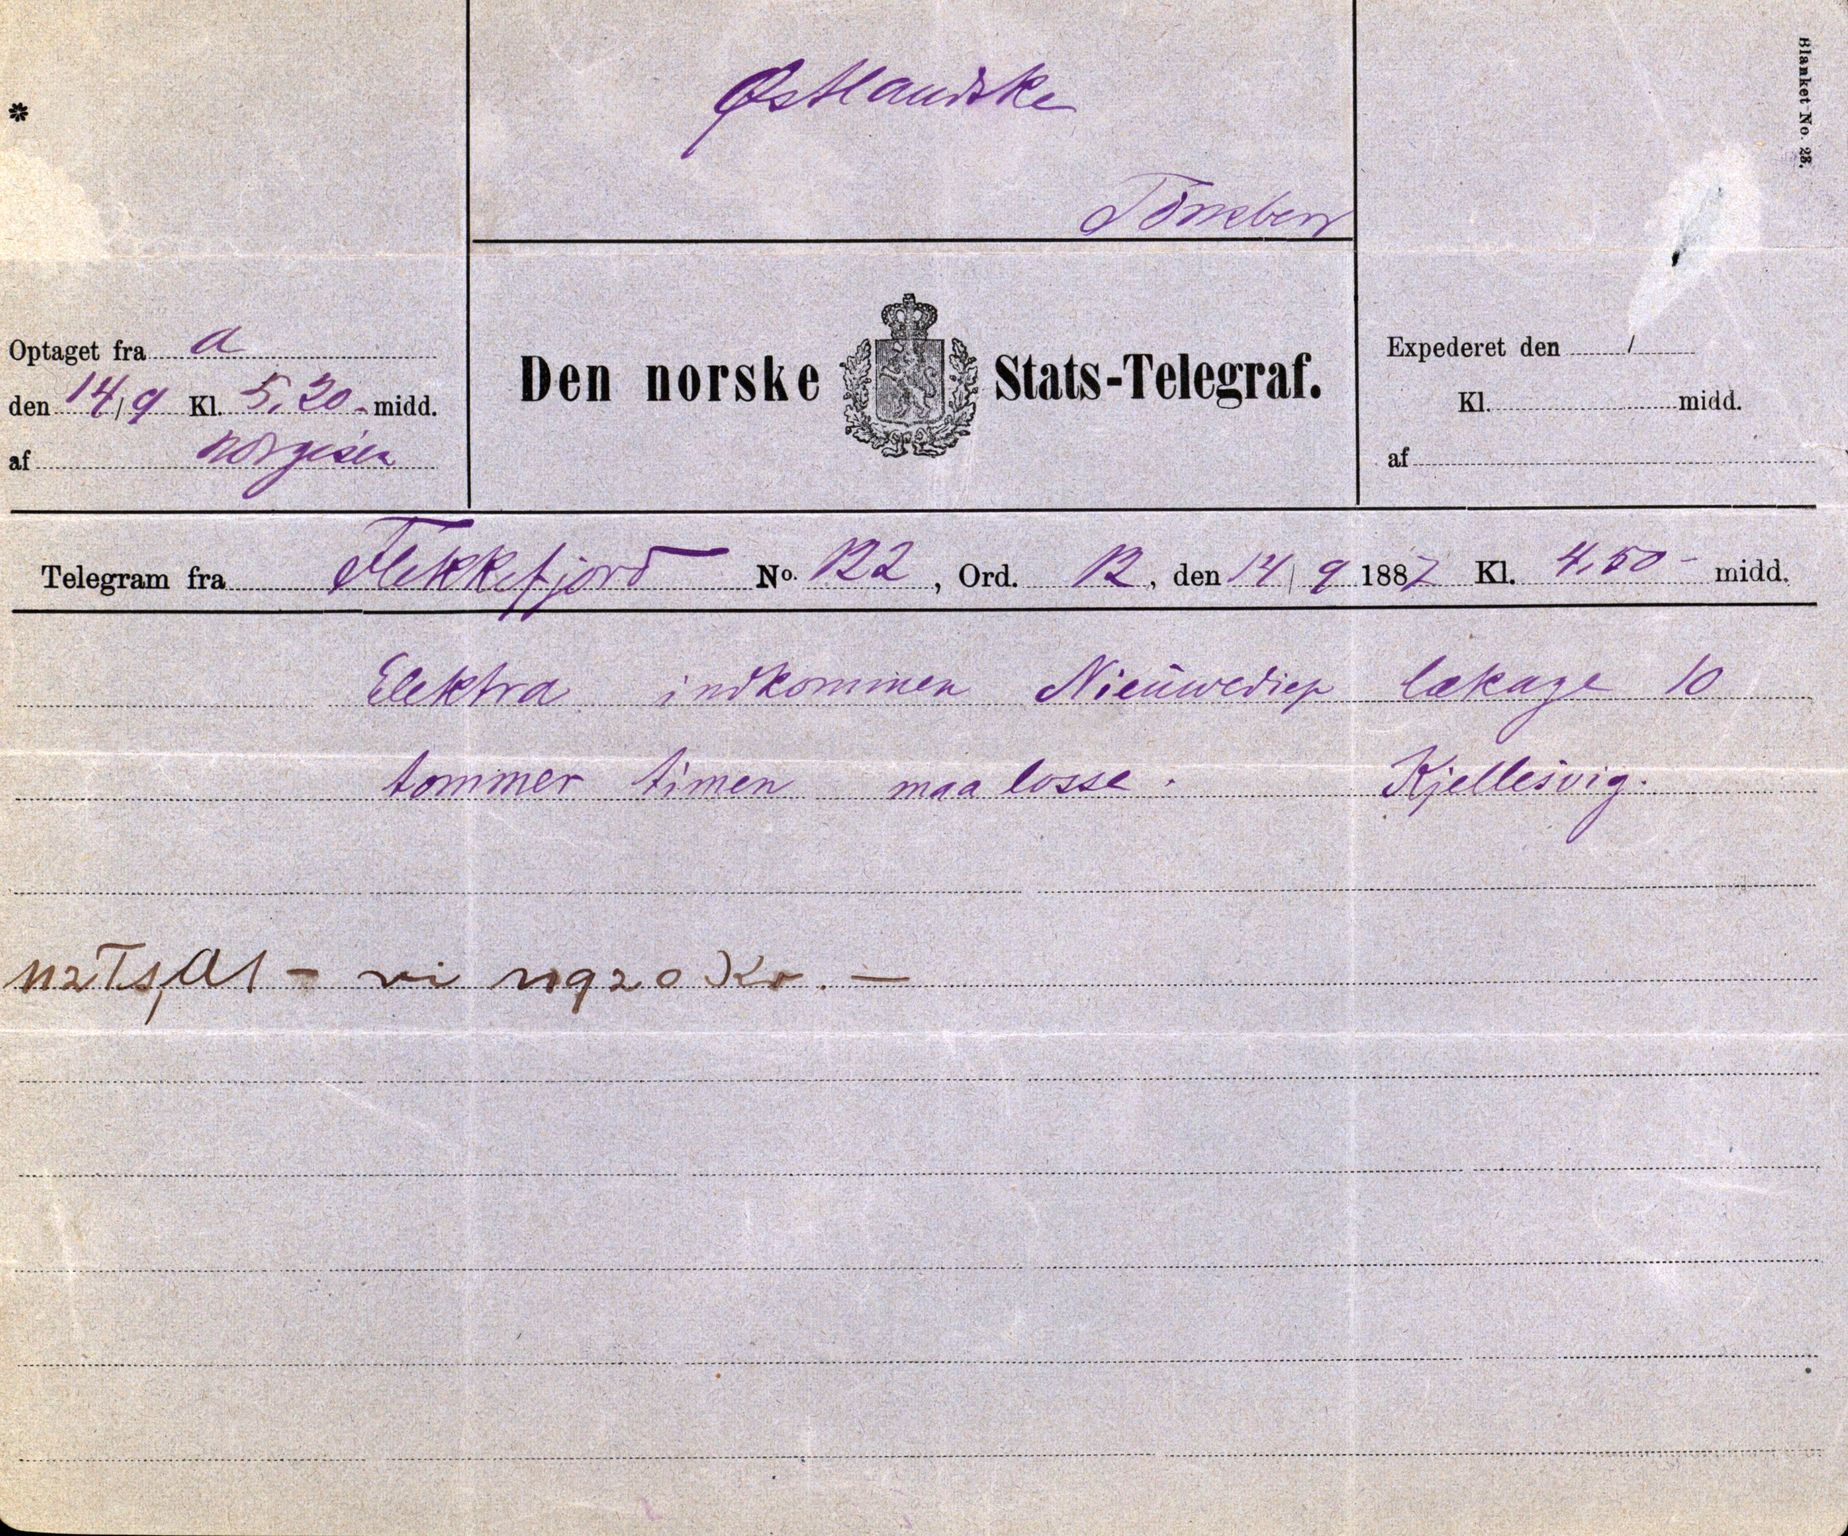 *
Østlandske
Blanket No. 23.
Tönsberg
Optaget fra a
den 14/9 Kl. 5,20 - midd.
af
Den norske Stats-Telegraf.
Expederet den /
Kl. midd.
af
Telegram fra Flekkefjord No. 122, Ord. 12, den 14/9 1887 Kl. 4,50 - midd.
Elektra indkommen Nieuwediep lækage 10
tommer timen maa losse. Kjellesvig.
- vi 1920 Kr. —